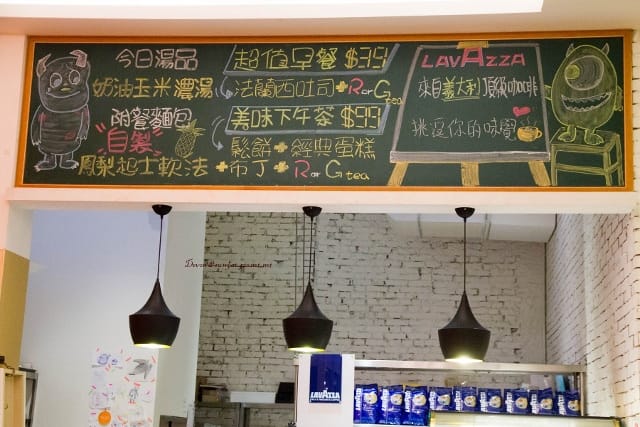 今日湯品
奶油玉米濃湯
附餐麵包
自製
鳳梨起士軟法
超值早餐 $99
法蘭西吐司+R or G tea
美味下午茶 $99
鬆餅+經典蛋糕
+布丁+R or G tea
LAVAZZA
來自義大利頂級咖啡
挑逗你的味覺
LAVAZZA